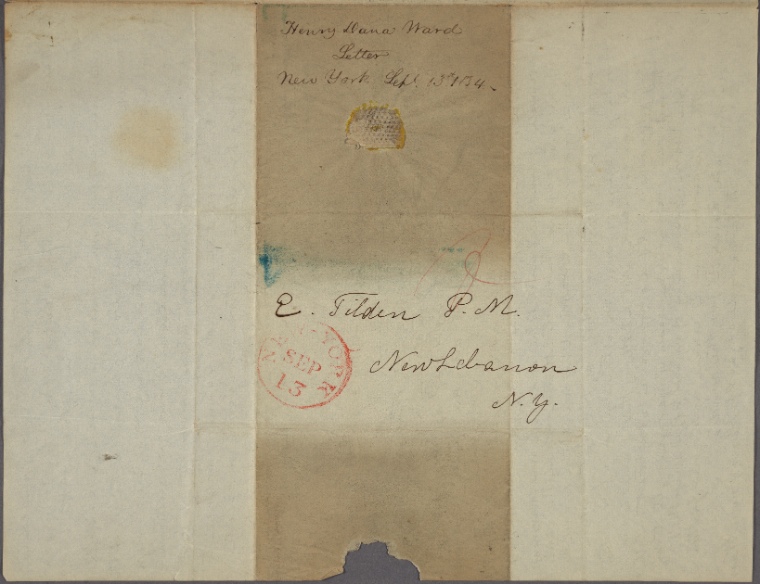 Henry Dana Ward
Letter
New York Sept. 13th 1834.
E. Tilden P.M.
New Lebanon
N.Y.
NEW-YORK
SEP
13